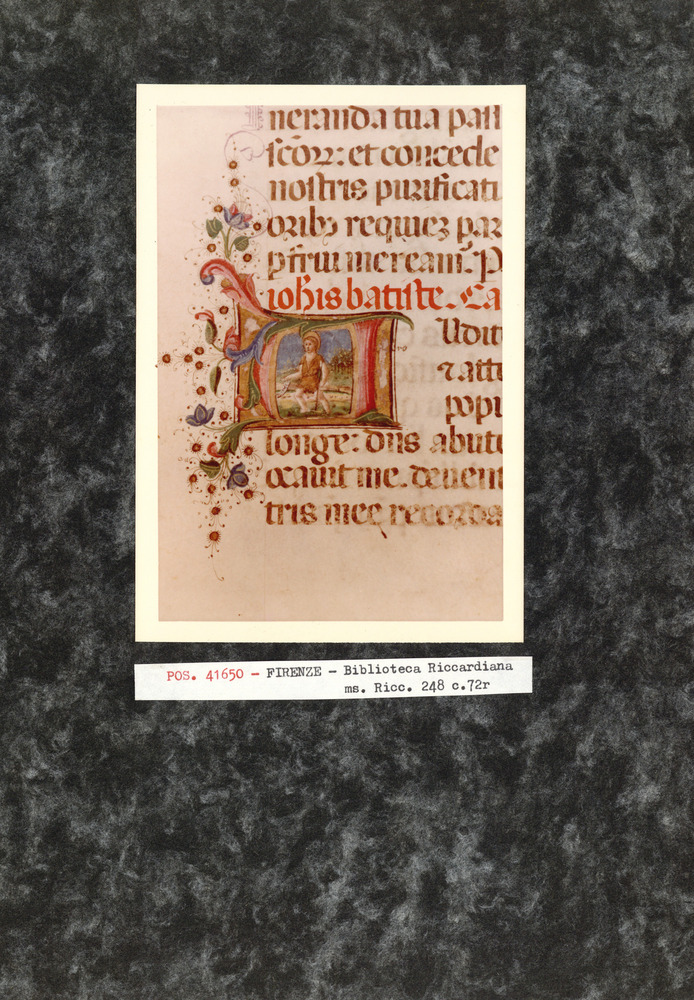 neranda tua pass
scōrꝝ: et concede
nostris purificati
oribꝫ requieꝫ par
p̄frui mereant̄. P
iohīs batiste. Ca
Udit
⁊ atte
popu
longe: dn̄s ab ute
ocauit me. de uent
tris mee recorda
POS. 41650 - FIRENZE - Biblioteca Riccardiana
ms. Ricc. 248 c.72r